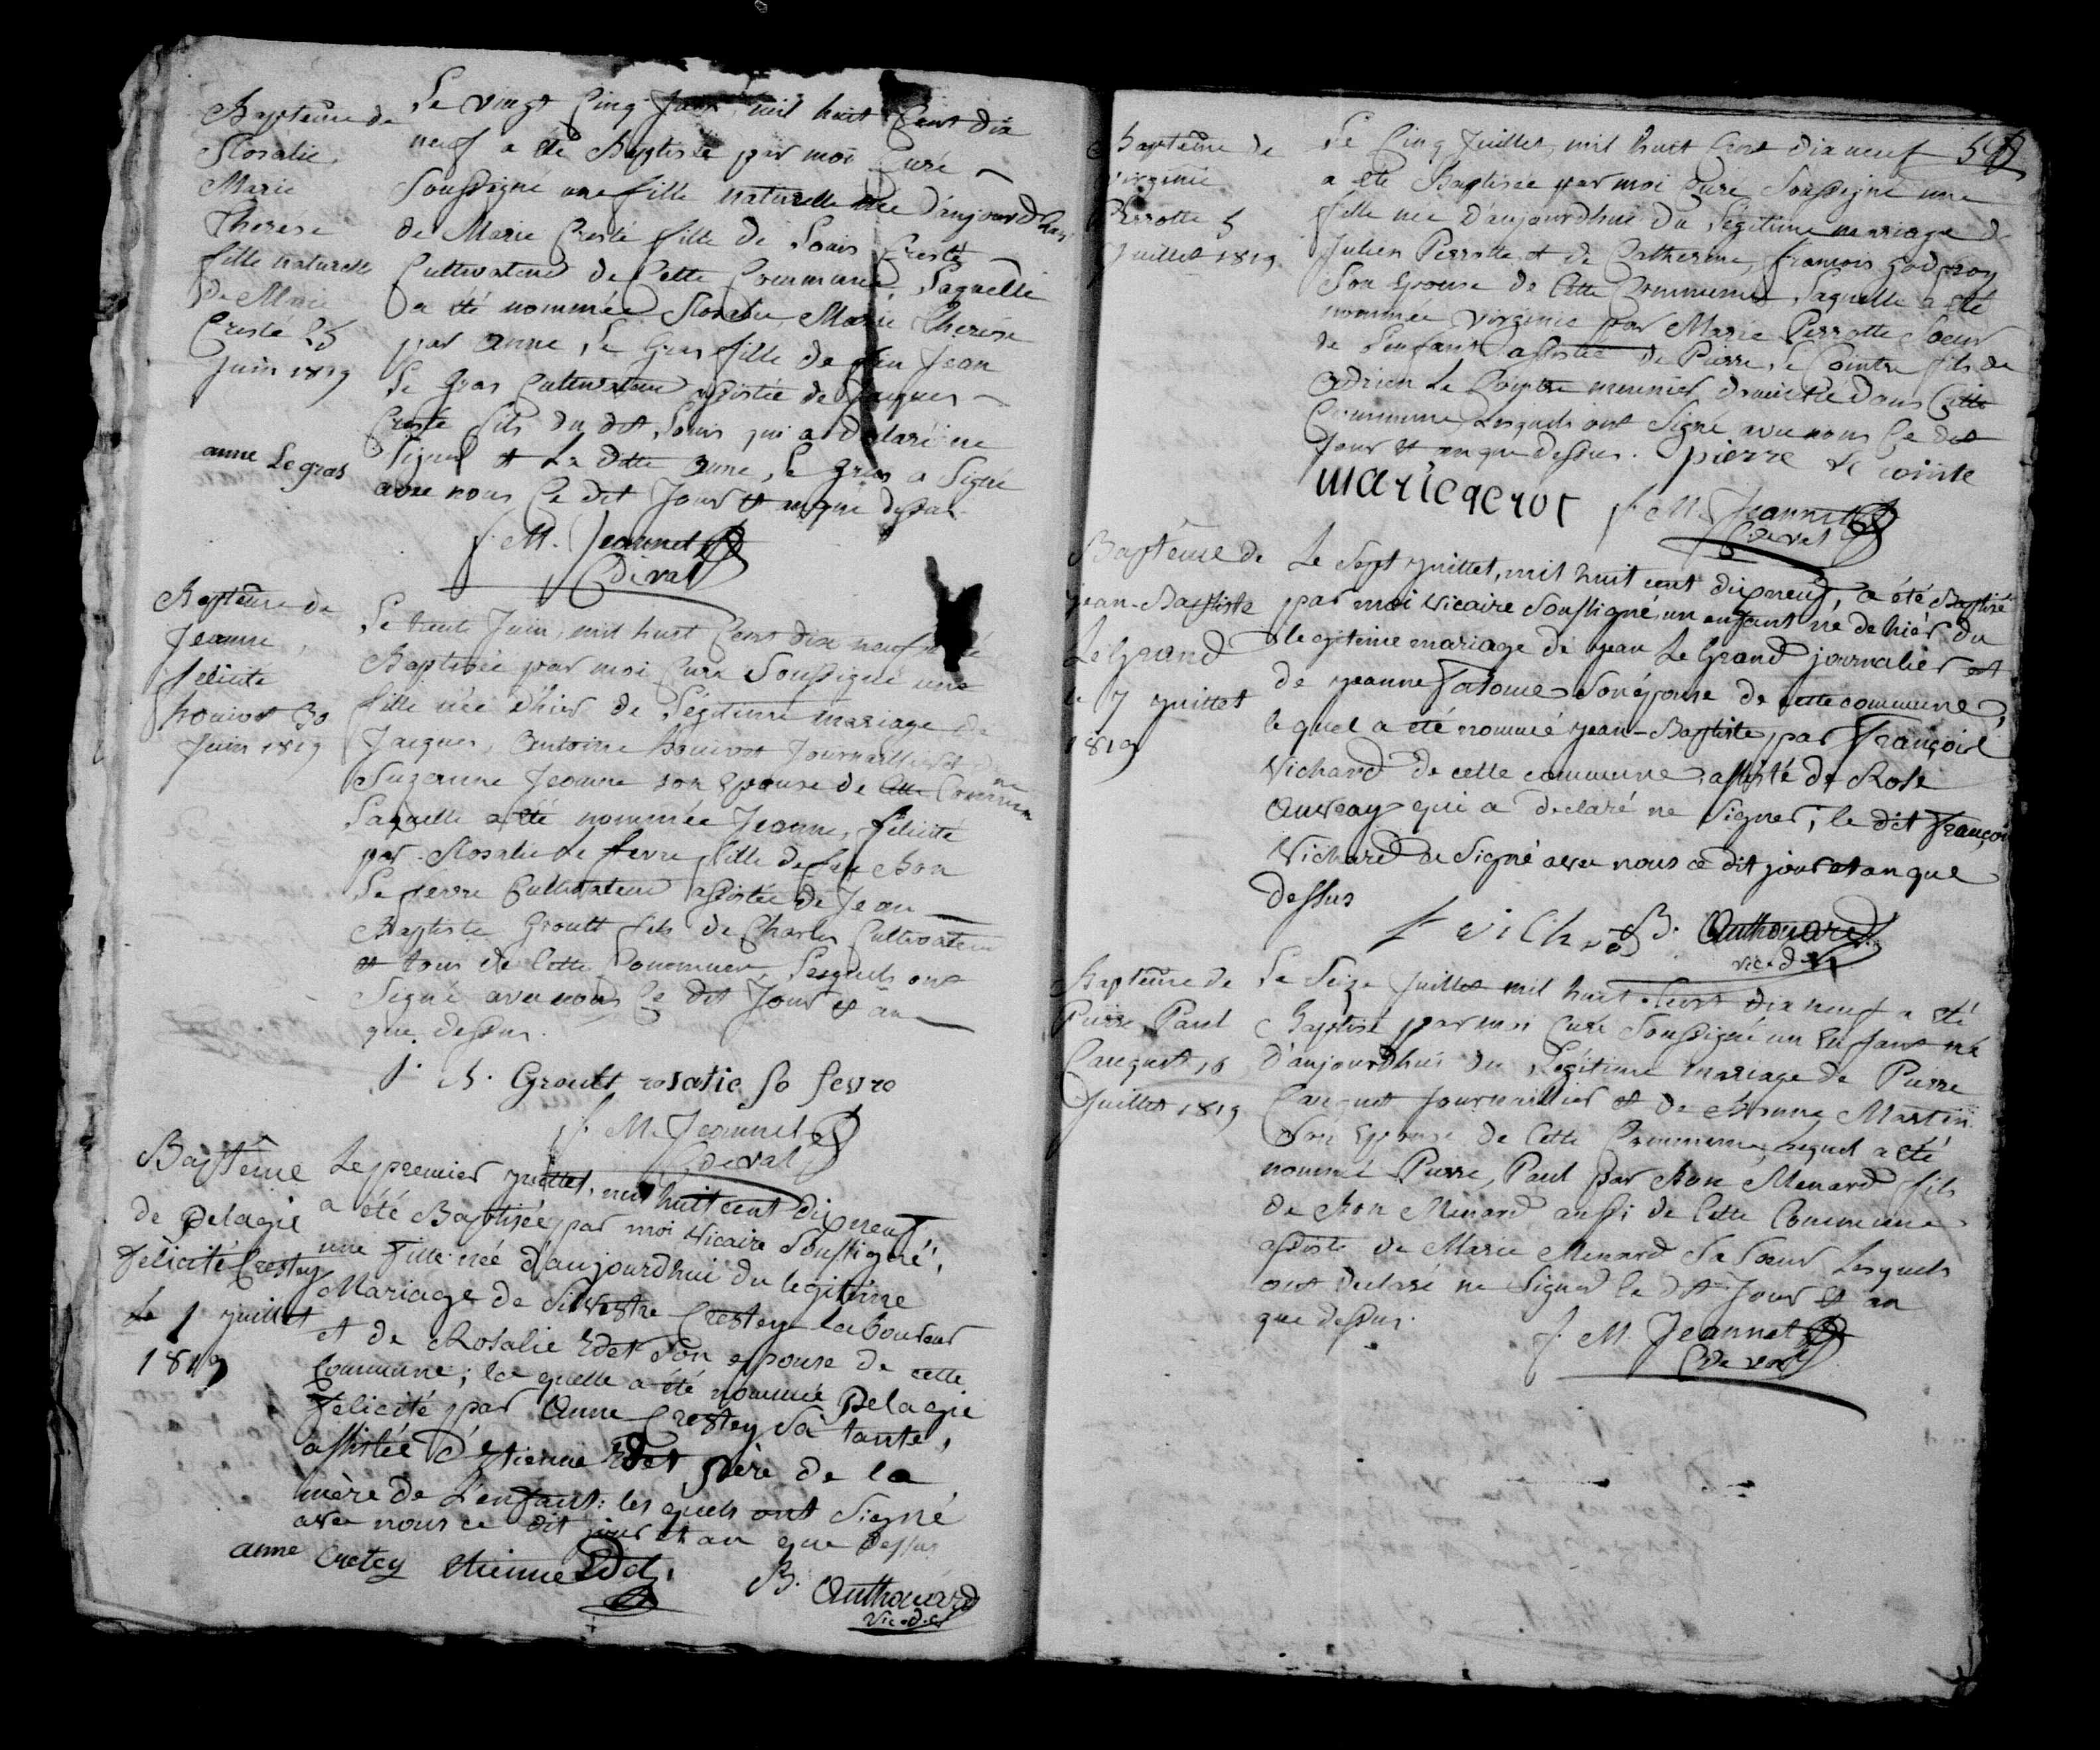 Baptême de
Rosalie
Marie
Therése
fille naturelle
de Marie
Cresté 25
Juin 1819
Le vingt Cinq Juin mil huit Cent dix
neuf a été Baptisée par moi Curé
Soussigné une fille naturelle née d'aujourd'hui
de Marie Cresté fille de Louis Cresté
Cultivateur de Cette Commune, Laquelle
a été nommée Rosalie, Marie Therése
par anne, Le Gras fille de feu Jean
Le Gras Cultivateur assistée de Jacques
Cresté fils du dit Louis qui a déclaré ne
Signer et La ditte anne, Le gras a Signé
avec nous Ce dit Jour et an que dessus
anne Le gras
f. M. Jeannet
C de vat
Baptême de
Jeanne,
félicité
30
Juin 1819
Le trente Juin, mil huit Cent dix neuf a été
Baptisée par moi Curé Soussigné une
fille née d'hier de Légitime mariage de
Jacques, Antoine Journallier et de
Suzanne Jeanne son Epouse de Cette Commune
Laquelle a été nommée Jeanne, félicité
par Rosalie Le fevre fille de feu Bon
Le fevre Cultivateur assistée de Jean
Baptiste Groult fils de Charles Cultivateur
et tous de Cette Commune, Lesquels ont
Signé avec nous Ce dit Jour et an
que dessus.
J. B. Groult rosalie le fevre
f. M. Jeannet
C de vat
Baptême
de Pelagie
félicité Crestey
Le 1 juillet
1819
Le premier juillet, mil huit cent dix neuf,
a été Baptisée par moi Vicaire Soussigné,
une fille née d'aujourdhui du legitime
Mariage de Silvestre Crestey laboureur
et de Rosalie Edet Son epouse de cette
Commune; la quelle a été nommée Pelagie
félicité par Anne Crestey Sa tante,
assistée d'Etienne Edet père de la
mère de L'enfant: les quels ont Signé
avec nous ce dit jour et an que dessus
anne Cretey etienne Edet
B. Anthouard
Vic. d.
Baptême de
virginie
Perrotte 5
Juillet 1819
Le Cinq Juillet, mil huit Cent dix neuf
a été Baptisée par moi Curé Soussigné une
fille née d'aujourdhui du Légitime mariage de
Julien Perrotte et de Catherine, françois godfroy
Son Epouse de Cette Commune, Laquelle a été
nommée virginie par Marie Perrotte Soeur
de L'enfant assistée de Pierre, Le Cointre fils de
Adrien Le Cointre meunier domicilié dans Cette
Commune, Lesquels ont Signé avec nous Ce dit
Jour et an que dessus. pierre le cointe
marie perot f. M. Jeannet
C de vat
Baptême de
jean-Baptiste
Le Grand
le 7 juillet
1819
Le Sept juillet, mil huit cent dix neuf, a été Baptisé
par moi Vicaire Soussigné, un enfant né de hier du
legitime mariage de jean Le Grand journalier et
de jeanne Tatome Son épouse de cette commune,
lequel a été nommé jean-Baptiste, par François
Vichard de cette commune, assisté de Rose
Auvray qui a declaré ne Signer; le dit François
Vichard a Signé avec nous ce dit jour et an que
dessus
f vichard B. Anthouard
vic. d.
Baptême de
Pierre, Paul
Canquet 16
Juillet 1819
Le Seize Juillet mil huit Cent dix neuf a été
Baptisé par moi Curé Soussigné un Enfant né
d'aujourdhui du Légitime mariage de Pierre
Canquet Journallier et de Bonne Martin
Son Epouse de Cette Commune, Lequel a été
nommé Pierre, Paul par Bon Menard fils
de Bon Menard aussi de Cette Commune
assisté de Marie Menard Sa Soeur Lesquels
ont declaré ne Signer le dit Jour et an
que dessus.
f. M. Jeannet
C de vat